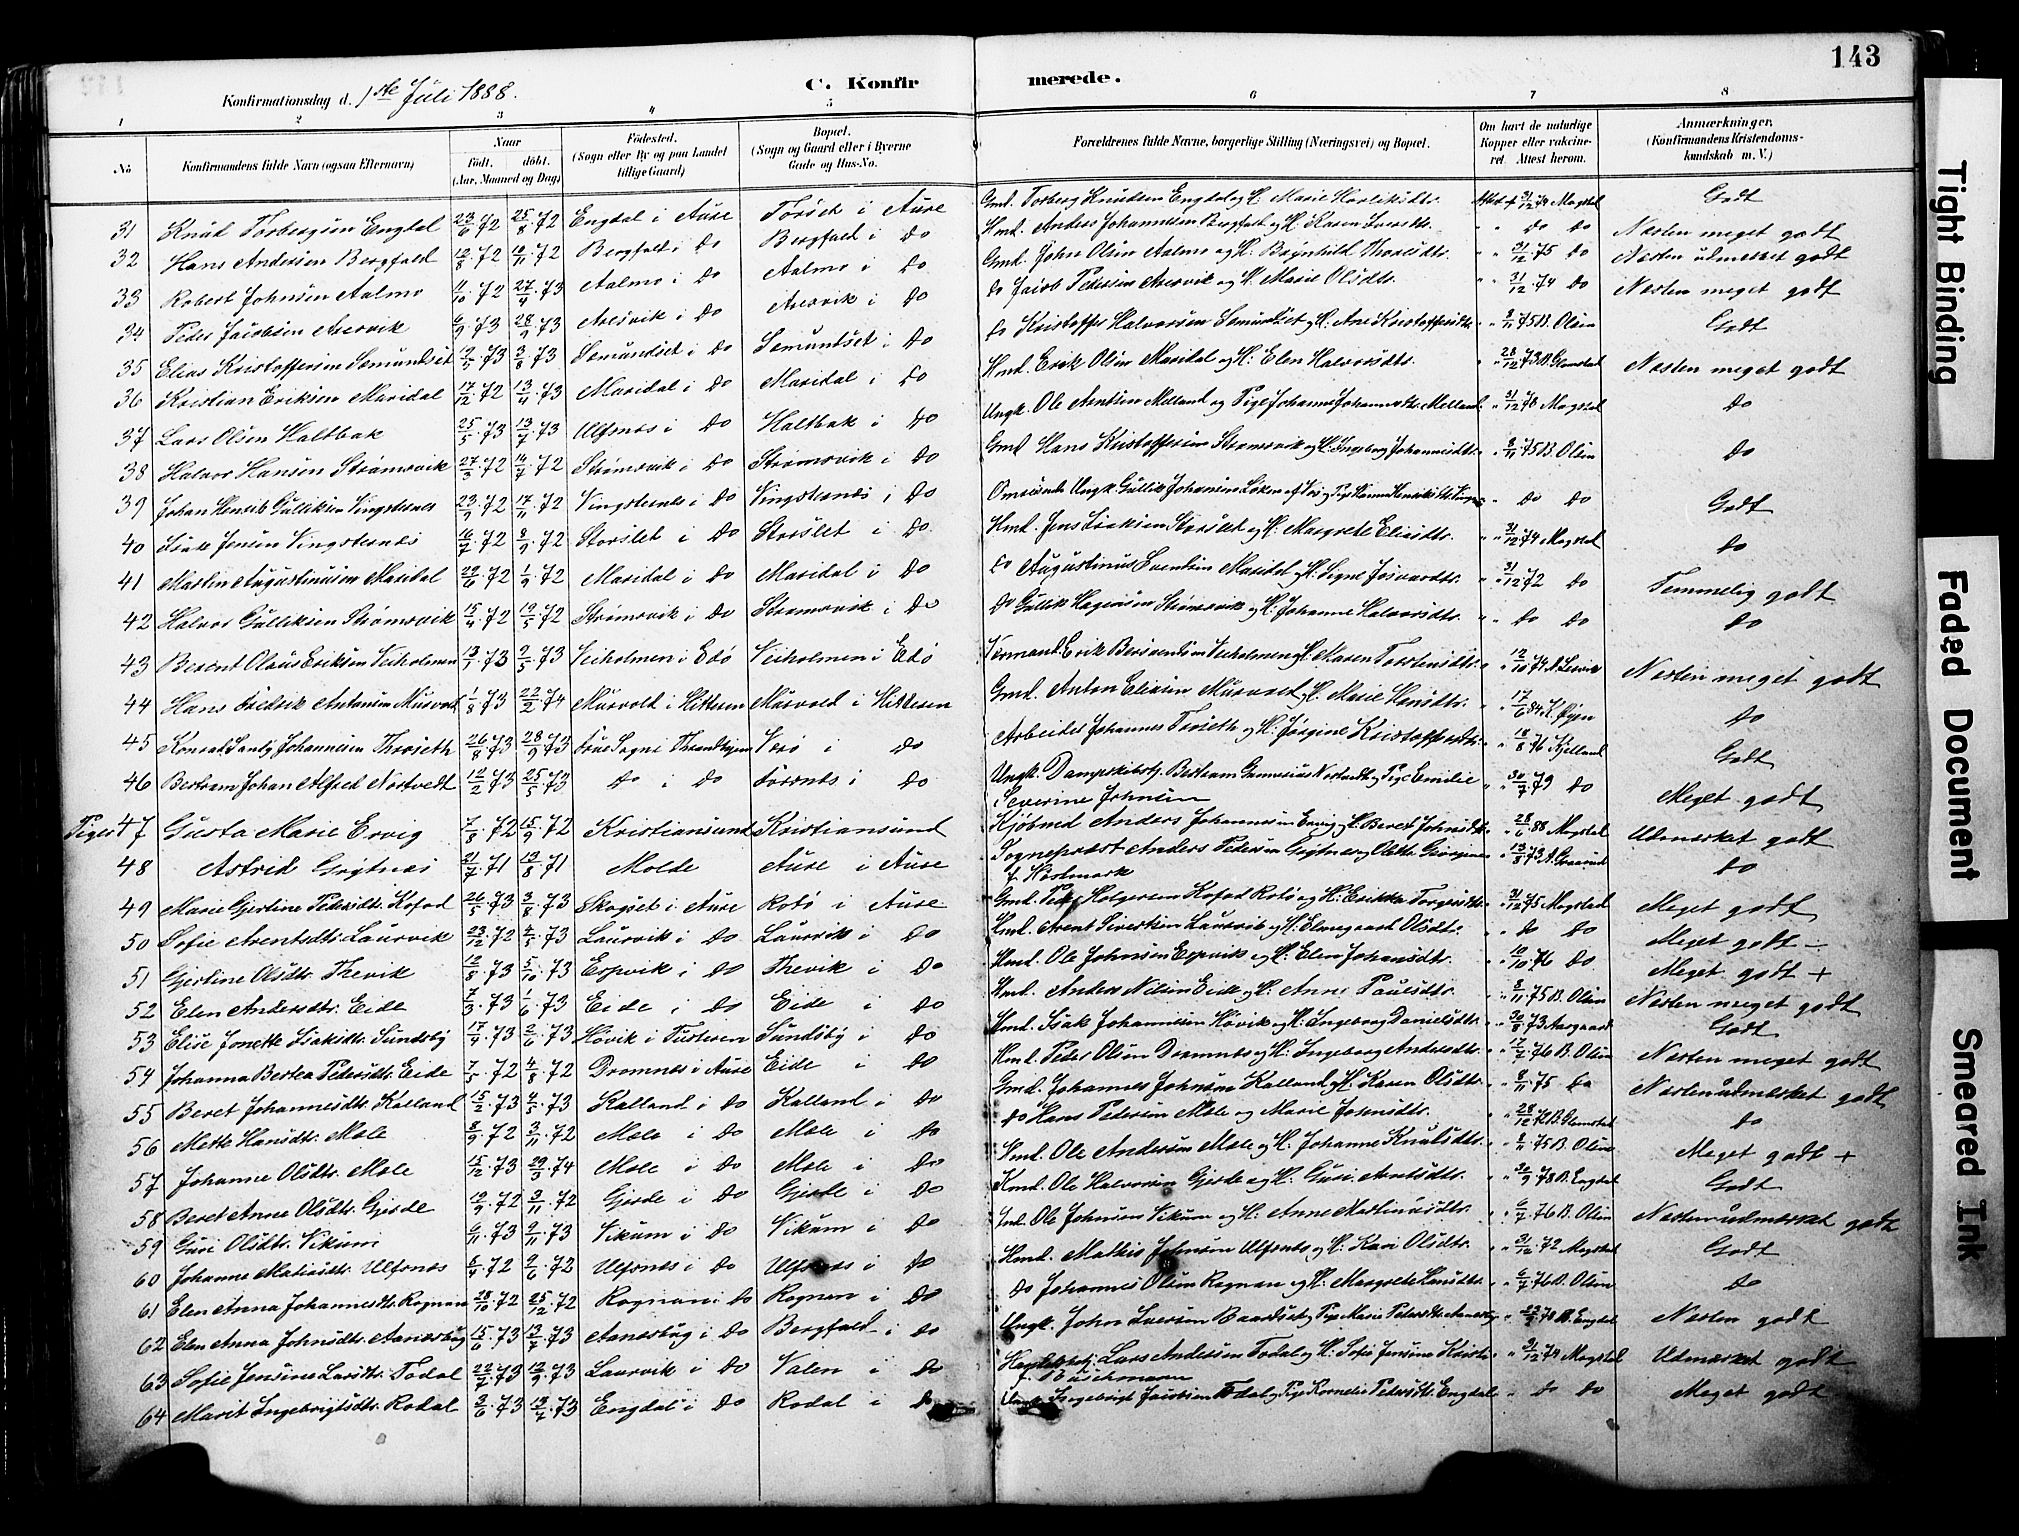 143
Konfirmationsdag d. 1ste Juli 1888. C. Konfirmerede.
1 2 3 4 5 6 7 8
No Konfirmandens fulde Navn (ogsaa Efternavn) Naar Födt. döbt. (Aar, Maaned og Dag) Födested. (Sogn eller By og paa Landet tillige Gaard) Bopæl. (Sogn og Gaard eller i Byerne Gade og Hus-No. Forældrenes fulde Navne, borgerlige Stilling (Næringsvei) og Bopæl. Om havt de naturlige Kopper eller vakcineret. Attest herom. Anmærkninger, (Konfirmandens Kristendomskundskab m. V.)
31 Knud Torbergsen Engdal 23/6 72 25/8 72 Engdal i Aure Torset i Aure Gmd. Torberg Knudsen Engdal og H. Marie 31/12 74 Magstad Godt
32 Hans Andersen Bergfald 12/8 72 10/11 72 Bergfald i do Bergfald i do Hmd. Anders Johannesen Bergfald og H. Karen " do do Næsten meget godt
33 Robert Johnsen Aalmo 11/10 72 27/4 73 Aalmo i do Aalmo i do Gmd. John Olsen Aalmo og H. Brynhild " 31/12 75 do Næsten udmærket godt
34 Peder Jacobsen Aresvik 6/9 73 28/9 73 Aresvik i do Aresvik i do do Jacob Pedersen Aresvik og H. Marie Olsdtr. " 31/12 74 do Næsten meget godt
35 Elias Kristoffersen Semundset 73 3/8 73 Semundset i do Semundset i do do Kristoffer Halvorsen Semundset og H. Ane Kristoffersdtr " 8/11 75 B. Olsen Godt
36 Kristian Eriksen Maridal 17/12 72 13/4 73 Maridal i do Maridal i do Hmd. Erik Olsen Maridal og H. Elen Halvorsdtr. " 28/12 73 B. Glomstad Næsten meget godt
37 Lars Olsen Haltbak 25/5 73 13/7 73 Ulfsnes i do Haltbak i do Ungk. Ole Arntsen Melland og Pige Johanne Johannesdtr. Melland " 31/12 78 Magstad do
38 Halvor Hansen Strømsvik 27/3 72 14/7 72 Strømsvik i do Strømsvik i do Gmd Hans Kristoffersen Strømsvik og H. Ingeborg Johannesdtr. " 8/11 75 B. Olsen do
39 Johan Henrik Gulliksen Vingsternes 23/9 72 17/11 72 Vingsternes i do Vingsternes i do Ungk. Gullik Johansen Løken " do do Godt
40 Isak Jensen Vingsternes 16/7 72 8/9 72 Storslet i do Storslet i do Hmd. Jens Isaksen Storslet og H. Margrete Eliasdtr. " 31/12 74 Magstad do
41 Martin Augustinusen Maridal 29/6 72 1/9 72 Maridal i do Maridal i do do Augustinus Svendsen Maridal og H. Signe " 31/12 72 do Temmelig godt
42 Halvor Gulliksen Strømsvik 15/4 72 19/5 72 Strømsvik i do Strømsvik i do do Gullik Hagensen Strømsvik og H. Johanne Halvorsdtr. " do do do
43 Berent Olaus Eriksen Veiholmen 73 2/5 73 Veiholmen i Edø Veiholmen i Edø Erik Berentsen Veiholmen og H. Maren Torstensdtr. " 12/10 74 Næsten meget godt
44 Hans Fredrik Antonsen Musvold 1/8 73 22/2 74 Musvold i Hitteren Musvold i Hitteren Gmd. Anton Eliasen Musvold og H. Marie Hansdtr. " 17/6 84 K. Øyen do
45 Konrad Johannesen Throseth 26/8 73 28/9 73 Frue Sogn i Throndhjem Verø i do Arbeider Johannes Troseth og H. Jørgine Kristoffersdtr. " 18/8 76 Kjelland Godt
46 Bertram Johan Alfred Nortvedt 12/2 73 25/5 73 do i do Forsnes i do Ungk. Dampskibstj. Bertram Nortvedt og Pige Emilie Severine Johnsen " 30/7 79 do Meget godt
Piger 47 Gusta Marie Ervig 7/8 72 15/9 72 Kristiansund Kristiansund Kjøbmd Anders Johannesen Ervig og H. Beret Johnsdtr " 28/6 88 Magstad Udmærket godt
48 Astrid Grytnes 21/7 71 13/8 71 Molde Aure i Aure Sogneprest Anders Pedersen Grytnes og Olette f. " 13/8 73 do
49 Marie Gjertine Pedersdtr. Kofod 26/5 73 3/8 73 Skogset i Aure Rotø i Aure Gmd. Peder Holgersen Kofod Rotø og H. Erikke Torgersdtr. " 31/12 75 Magstad Meget godt
50 Sofie Arentsdtr. Laurvik 23/12 72 4/5 73 Laurvik i do Laurvik i do Hmd. Arent Sivertsen Laurvik og H. Olsdtr. " do do Meget godt -
51 Gjertine Olsdtr. Thevik 12/8 73 5/10 73 Espvik i do Thevik i do Hmd. Ole Johnsen Espvik og H. Elen Johansdtr. " 12/10 76 do Meget godt +
52 Elen Andersdtr. Eide 7/3 73 1/6 73 Eide i do Eide i do Hmd. Anders Nilsen Eide og H. Anne Paulsdtr. " 8/11 75 B. Olsen Næsten meget godt
53 Elise Jonette Isaksdtr. Sundsby 17/4 73 2/6 73 Høvik i Tusteren Sundsby i do Hmd. Isak Johannesen Høvik og H. Ingeborg Danielsdtr. " 30/8 73 Aargaard Godt
54 Johanna Bertea Pedersdtr. Eide 7/5 72 4/8 72 Dromnes i Aure Eide i do Hmd. Peder Olsen Dromnes og H. Ingeborg Andersdtr. " 17/7 76 B. Olsen Næsten meget godt
55 Beret Johannesdtr. Kalland 15/2 73 4/5 73 Kalland i do Kalland i do Gmd. Johannes Johnsen Kalland og H. Karen Olsdtr. " 8/11 75 do Næsten udmærket godt
56 Mette Hansdtr. Mole 8/9 72 3/11 72 Mole i do Mole i do do Hans Pedersen Mole og Marie Johnsdtr. " 28/12 B. Glomstad do
57 Johanne Olsdtr. Mole 15/12 73 29/3 74 Mole i do Mole i do Hmd. Ole Andersen Mole og H. Johanne Knudsdtr. " 8/11 75 B. Olsen Meget godt +
58 Beret Anne Olsdtr. Gjerde 72 3/11 72 Gjerde i do Gjerde i do Hmd. Ole Halvorsen Gjerde og H. Guri Arntsdtr. " 30/9 78 B. Engdal Godt
59 Guri Olsdtr. Vikum 6/11 73 9/11 73 Vikum i do Vikum i do Ind. Ole Johnsen Vikum og H. Anne Martinusdtr. " 6/7 76 B. Olsen Næsten udmærket godt
60 Johanne Matiasdtr. Ulfsnes 8/4 72 9/6 72 Ulfsnes i do Ulfsnes i do Hmd. Mathis Johnsen Ulfsnes og H. Kari Olsdtr. " 31/12 72 Magstad Godt
61 Elen Anna Johannesdtr. Rognan 28/10 72 25/12 72 Rognan i do Rognan i do do Johannes Olsen Rognan og H. Margrete " 6/7 76 B. Olsen do
62 Elen Anna Johnsdtr. Aanesbug 15/6 73 13/7 73 Aanesbug i do Bergfald i do Ungk. John Iversen Baardset og Pige Marie Pedersdtr. Aanesbug " 78 B. Engdal Næsten godt
63 Sofie Jensine Larsdtr. Todal 22/7 73 73 Laurvik i do Valen i do Lars Andersen Todal og H. Sofie Jensine f. Buschmann " 31/12 74 Magstad Udmærket godt
64 Marit Ingebrigtsdtr. Rodal 2/6 73 13/7 73 Engdal i do Rodal i do Ungk. Ingebrigt Jacobsen Todal og Pige Kornelia Pedersdtr. Engdal " do do Meget godt
Tight Binding
Faded Document
Smeared Ink